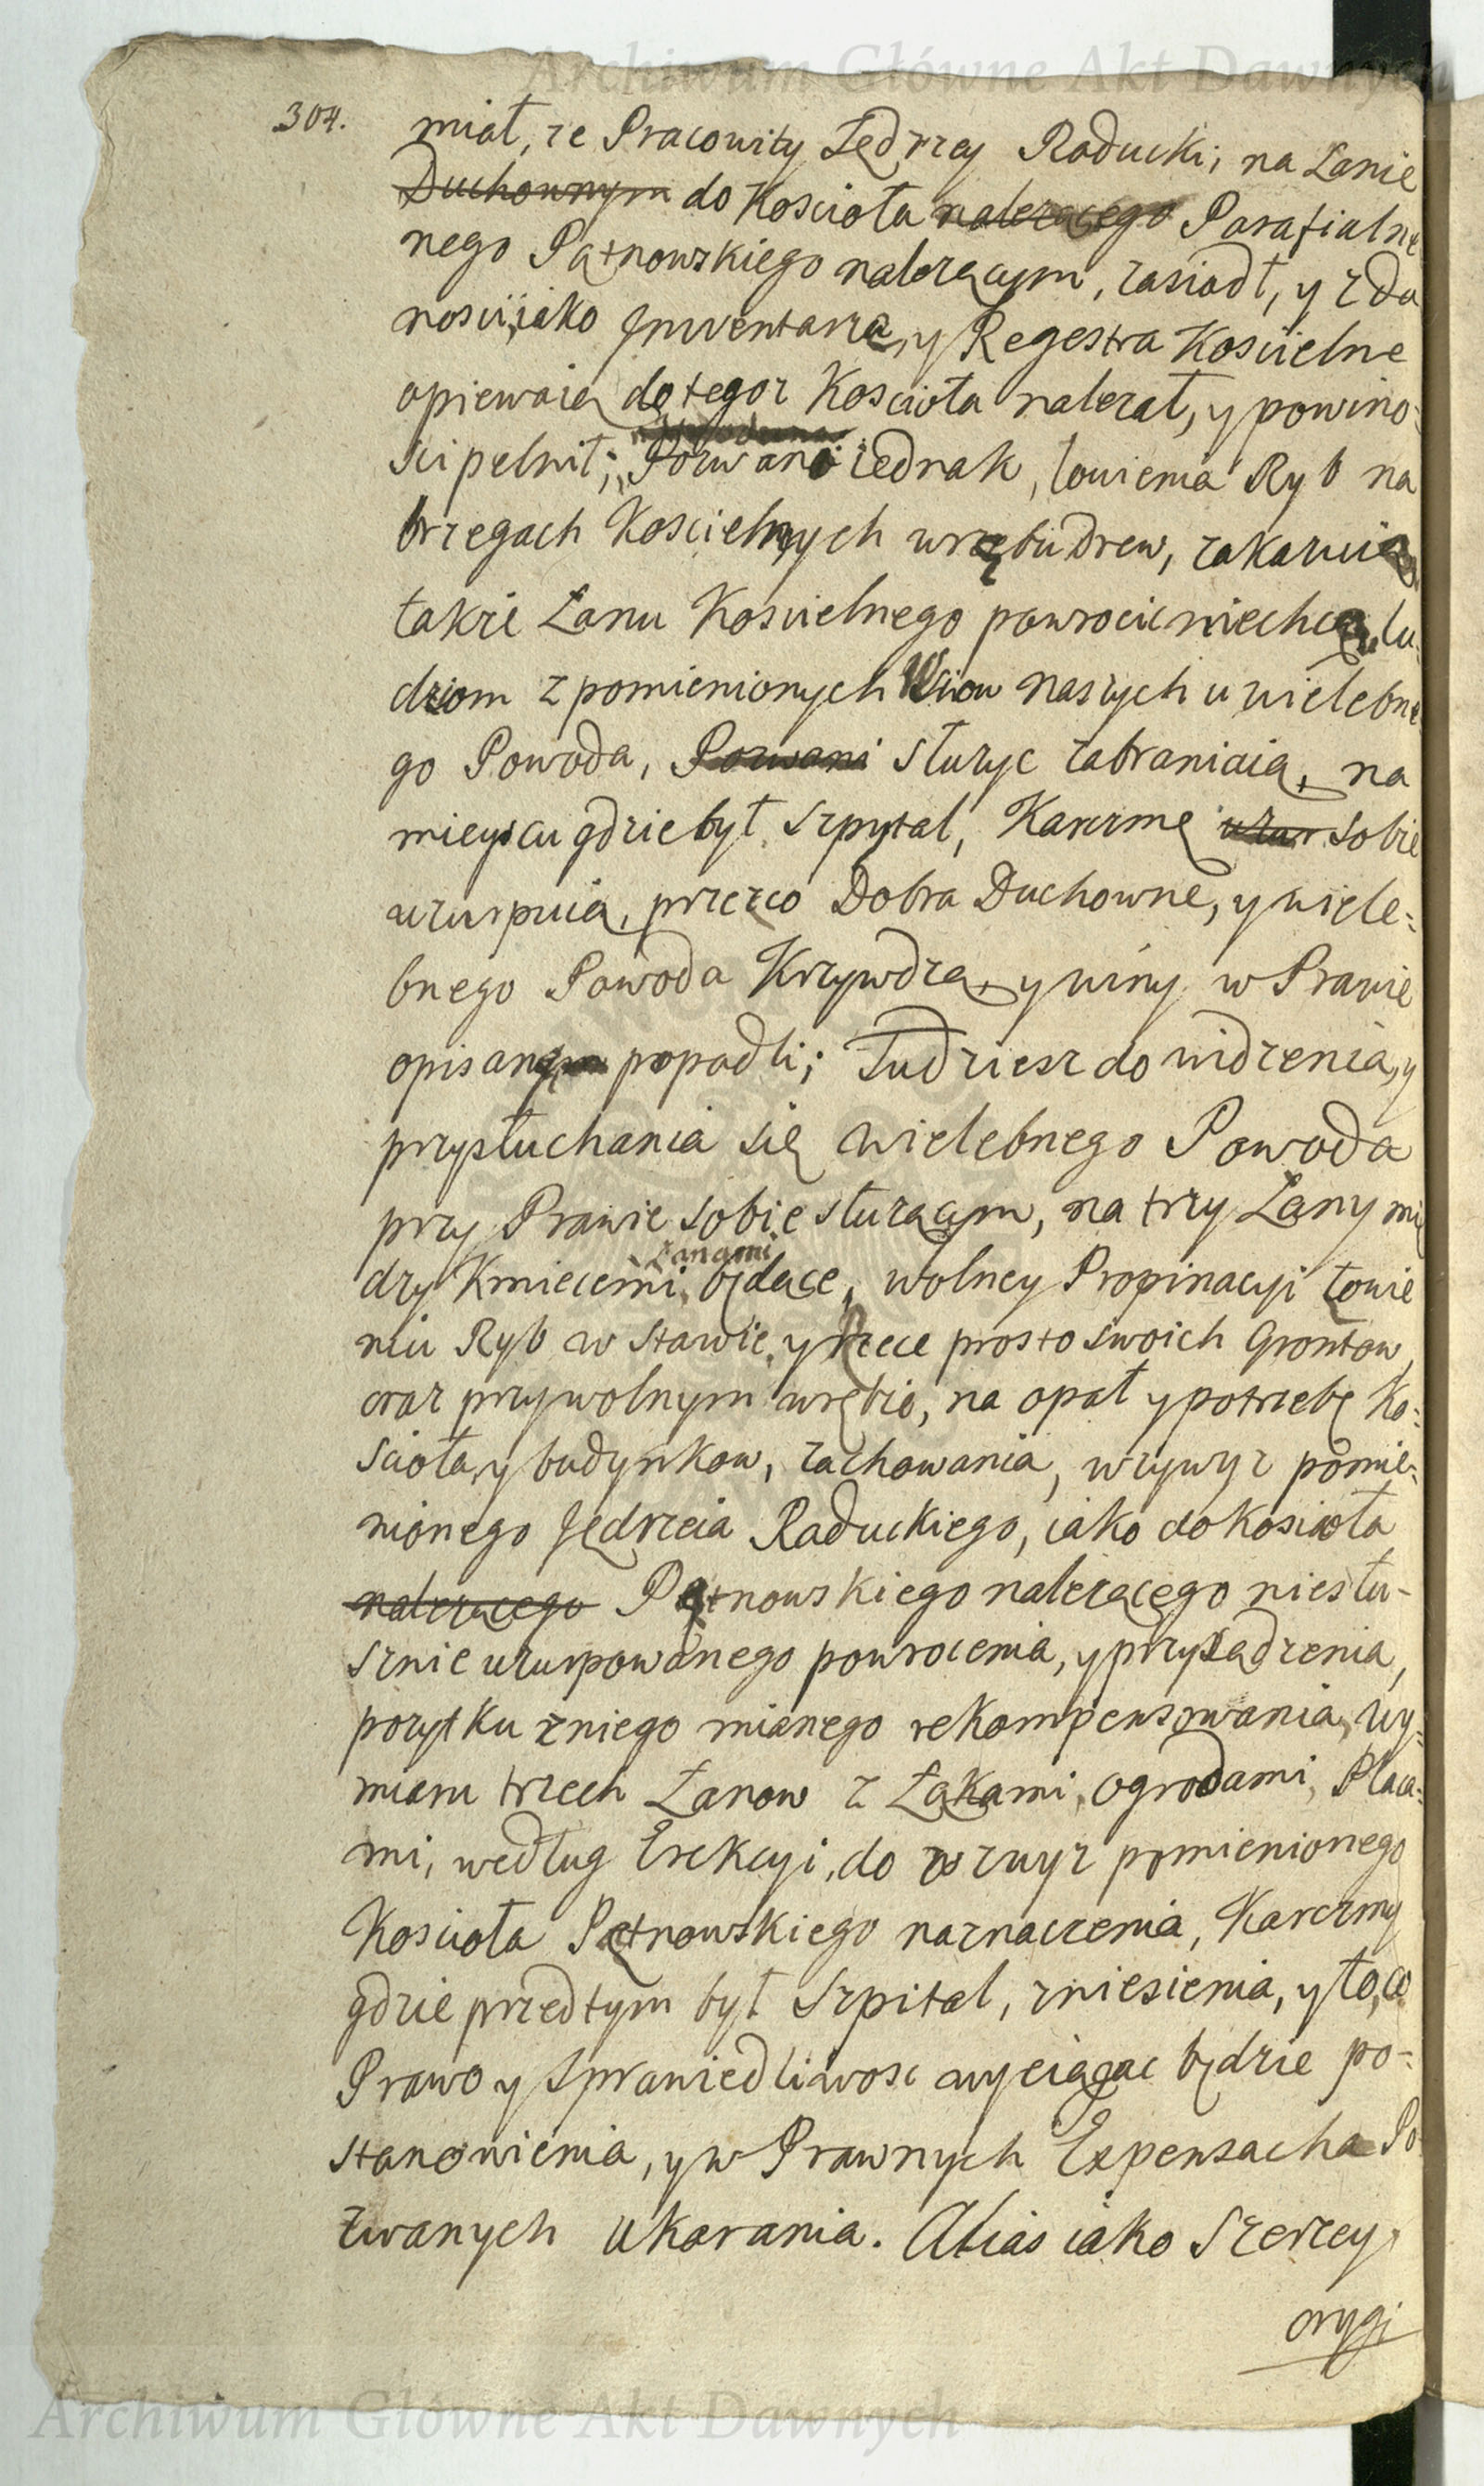 Archiwum Główne Akt Dawnych
304.
miał, ze Pracowity Jędrzey Raducki, na Łanie
Duchownym do Koscioła nalezącego Parafialne
nego Pątnowskiego nalezącym, zasiadł, y z Da
nosciiako Jnwentarze, y Regestra Koscielne
opiewaią do tegoz Koscioła nalezał, y powino-
sci pełnił; Pozwani iednak, łowienia Ryb na
brzegach Koscielnych wrębu Drew, zakazuią
takze Łanu Koscielnego powrocic niechcą, lu-
dziom z pomienionych Wsiow naszych u wielebne
go Powoda, Pozwani słuzyc zabraniaią, na
mieyscu gdzie był Szpytal, Karczmę uzur sobie
uzurpuią, przezco Dobra Duchowne, y wiele-
bnego Powoda Krzywdzą, y winy w Prawie
opisane popadli; Tudziesz do widzenia, y
przysłuchania się wielebnego Powoda
przy Prawie sobie słuzącym, na trzy Łany mię
dzy Kmiecemi Łanami będące, wolney Propinacyi łowie
niu Ryb w Stawie, y Rzece prosto swoich Grontow,
oraz przy wolnym wrębie, na opał y potrzebę Ko-
scioła, y budynkow, zachowania, wzywyz pomie-
nionego Jędrzeia Raduckiego, iako do koscioła
nalezącego Pątnowskiego nalezącego niesłu-
sznie uzurpowanego powrocenia, y przysądzenia,
pozytku zniego mianego rekompensowania, wy-
miaru trzech Łanow z Łąkami, ogrodami, Placa-
mi, według Erekcyi, do wzwyz pomienionego
Koscioła Pątnowskiego naznaczenia, Karczmy
gdzie przedtym był Szpital, zniesienia, y to, co
Prawo y Sprawiedliwosc wyciągac będzie po-
stanowienia, y w Prawnych Expensacha Po
zwanych ukarania. Alias iako Szerzey
orygi
Archiwum Główne Akt Dawnych